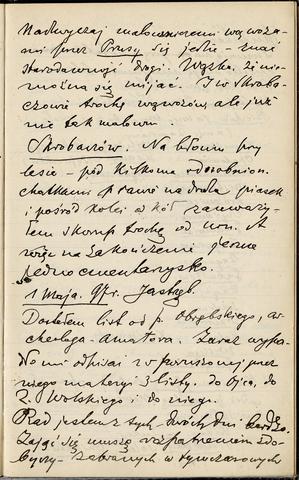 Nadzwyczaj malowniczemi wąwoza-
mi przez Prusy się jedzie – znać
starodawność drogi. Wązka, że nie
można się mijać. I w Skroba-
czowie trochę wąwozów, ale już
nie tak malown.
Skrobaczów. Na błoniu przy
lesie – pod kilkoma odosobnion.
chatkami prawo na drodze piasek
i pośród kolei kół zauważy-
łem skorup trochę od urn. A
więc na zakończenie jeszcze
jedno cmentarzysko.
1 Maja. 97 r. Jastrząb.
Dostałem list od p. Obrębskiego, ar-
cheologa-amatora. Zaraz wypa-
dło mi odpisać i w poruszonej przez
niego materyi 3 listy. do Ojca, do
Z. Wolskiego i do niego.
Rad jestem z tych dwóch dni bardzo.
Zająć się muszę rozpatrzeniem zdo-
byczy – zebranych w tymczasowych